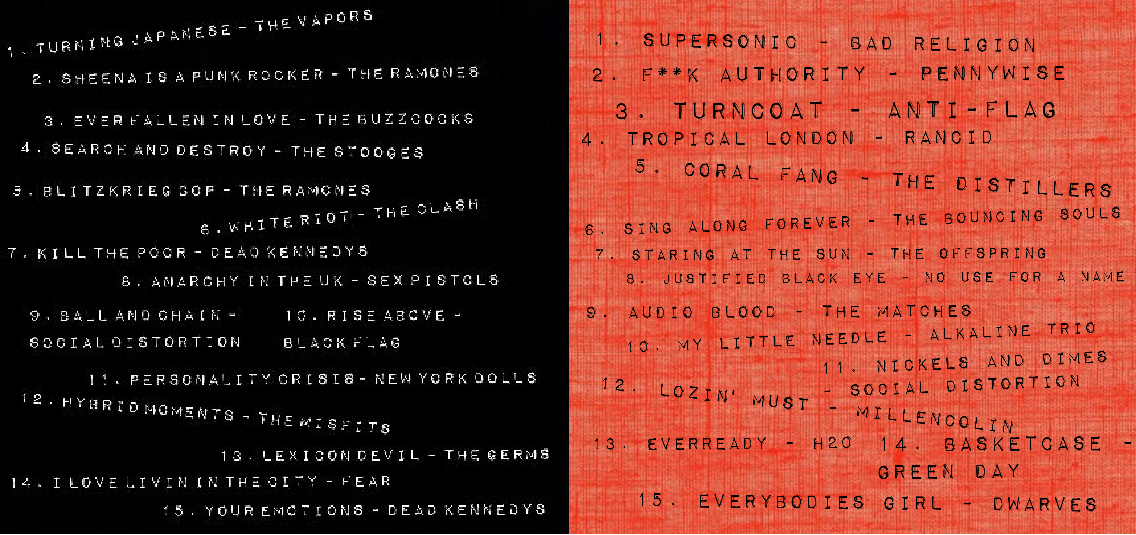 1. TURNING JAPANESE - THE VAPORS
2. SHEENA IS A PUNK ROCKER - THE RAMONES
3. EVER FALLEN IN LOVE - THE BUZZCOCKS
4. SEARCH AND DESTROY - THE STOOGES
5. BLITZKRIEG BOP - THE RAMONES
6. WHITE RIOT - THE CLASH
7. KILL THE POOR - DEAD KENNEDYS
8. ANARCHY IN THE UK - SEX PISTOLS
9. BALL AND CHAIN -
SOCIAL DISTORTION
10. RISE ABOVE -
BLACK FLAG
11. PERSONALITY CRISIS - NEW YORK DOLLS
12. HYBRID MOMENTS - THE MISFITS
13. LEXICON DEVIL - THE GERMS
14. I LOVE LIVIN IN THE CITY - FEAR
15. YOUR EMOTIONS - DEAD KENNEDYS
1. SUPERSONIC - BAD RELIGION
2. F**K AUTHORITY - PENNYWISE
3. TURNCOAT - ANTI-FLAG
4. TROPICAL LONDON - RANCID
5. CORAL FANG - THE DISTILLERS
6. SING ALONG FOREVER - THE BOUNCING SOULS
7. STARING AT THE SUN - THE OFFSPRING
8. JUSTIFIED BLACK EYE - NO USE FOR A NAME
9. AUDIO BLOOD - THE MATCHES
10. MY LITTLE NEEDLE - ALKALINE TRIO
11. NICKELS AND DIMES
- SOCIAL DISTORTION
12. LOZIN' MUST - MILLENCOLIN
13. EVERREADY - H2O
14. BASKETCASE -
GREEN DAY
15. EVERYBODIES GIRL - DWARVES